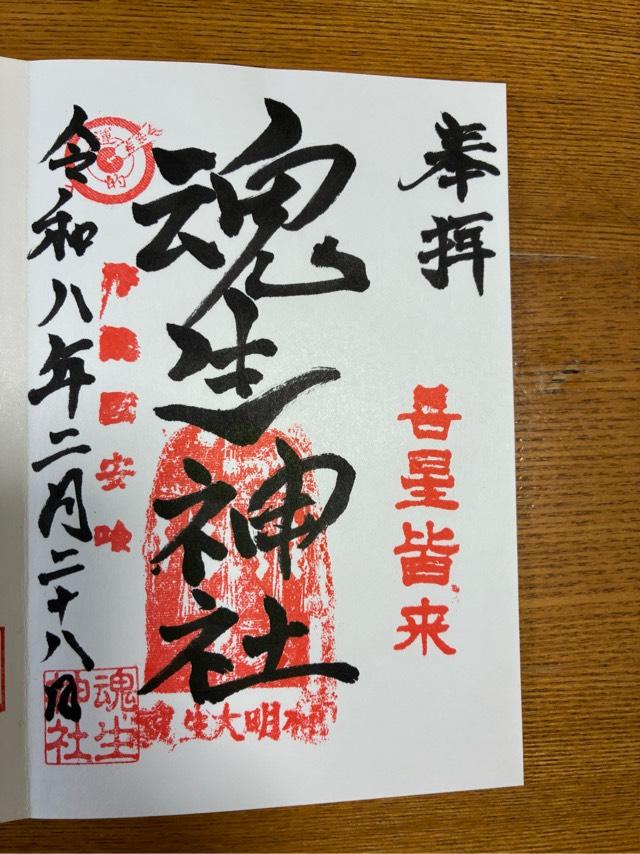 奉拝
善星皆来
魂生神社
魂生大明神
安
令和八年二月二十八日
魂生神社